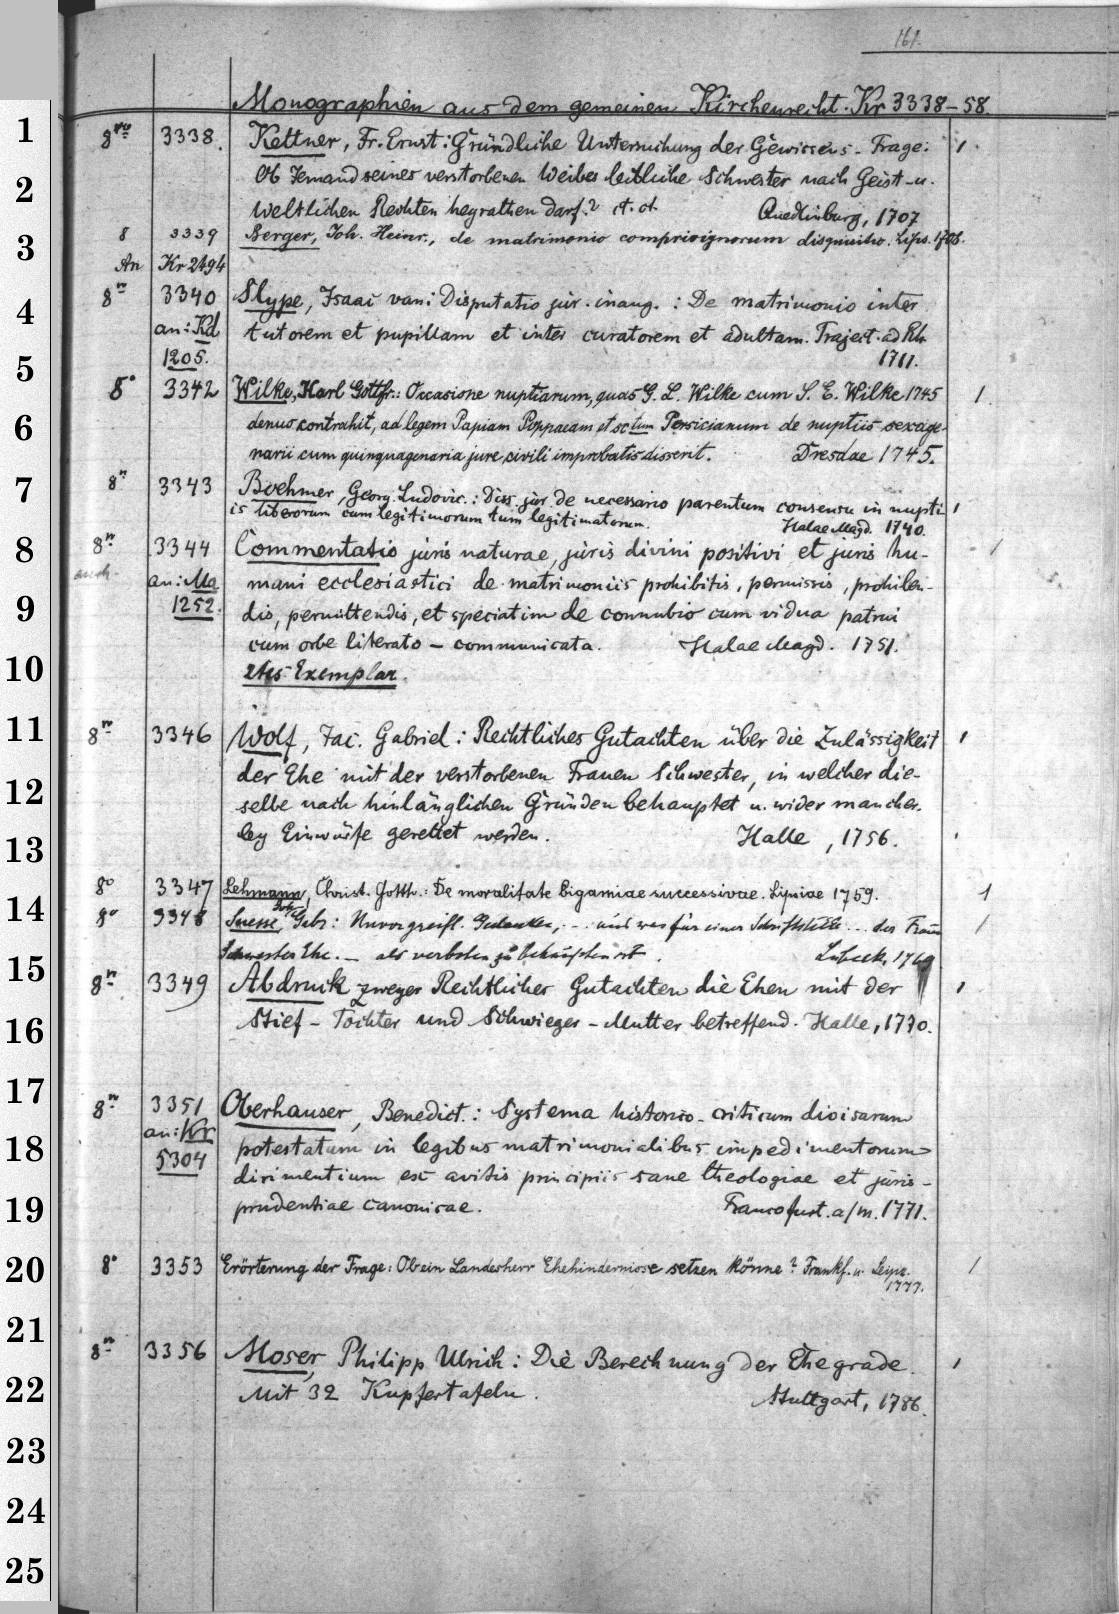 161.
Monographien aus dem gemeinen Kirchenrecht. Kr 3338-58.
1
8vo 3338. Kettner, Fr. Ernst: Gründliche Untersuchung der Gewissens-Frage:
2
Ob Jemand seines verstorbenen Weibes leibliche Schwester nach Geist- u.
Weltlichen Rechten heyrathen darf? Quedlinburg, 1707
3
8 3339 Berger, Joh. Heinr., de matrimonio comprivignorum disquisitio. Lips. 1708.
An Kr 2494
4
8o 3340 Slype, Isaac van: Disputatio jur. inaug.: De matrimonio inter
an: Kd tutorem et pupillam et inter curatorem et adultam. Traject. ad Rh.
5
1205. 1711.
8o 3342 Wilke, Karl Gottfr.: Occasione nuptiarum, quas G. L. Wilke cum S. E. Wilke 1745 1.
6
denuo contrahit, ad legem Papiam Poppaeam et sctum Persicianum de nuptiis sexage-
narii cum quinquagenaria jure civili improbatis disserit. Dresdae 1745.
7
8o 3343 Boehmer, Georg. Ludovic.: Diss. jur. de necessario parentum consensu in nupti-
is liberorum cum legitimorum tum legitimatorum. Halae Magd. 1740.
8
8o 3344 Commentatio juris naturae, juris divini positivi et juris hu-
an: Ma mani ecclesiastici de matrimoniis prohibitis, permissis, prohiben-
9
1252. dis, permittendis, et speciatim de connubio cum vidua patrui
cum orbe literato – communicata. Halae Magd. 1751.
10
2tes Exemplar.
11
8o 3346 Wolf, Jac. Gabriel: Rechtliches Gutachten über die Zulässigkeit
der Ehe mit der verstorbenen Frauen Schwester, in welcher die-
12
selbe nach hinlänglichen Gründen behauptet u. wider mancher-
ley Einwürfe gerettet werden. Halle, 1756.
13
8o 3347 Lehmann, Christ. Gotth.: De moralitate bigamiae successivae. Lipsiae 1759. 1
14
8o 3348 Suesse, Gebr: Unvorgreifl. Gedanken, ... und was für einer Schriftstelle ... der Frau
Schwester Ehe. – als verboten zu behaupten ist. Lübeck, 1769
15
8o 3349 Abdruck zweyer Rechtlicher Gutachten die Ehen mit der
16
Stief-Tochter und Schwieger-Mutter betreffend. Halle, 1770.
17
8o 3351 Oberhauser, Benedict.: Systema historico-criticum divisarum
an: Kr
18
potestatum in legibus matrimonialibus impedimentorum
5304 dirimentium ex avitis principiis sane theologiae et juris-
19
prudentiae canonicae. Francofurt. a/m. 1771.
20
8o 3353 Erörterung der Frage: Ob ein Landesherr Ehehindernisse setzen könne? Frankf. u. Leipz.
1777.
21
8o 3356 Moser, Philipp Ulrich: Die Berechnung der Ehegrade.
22
Mit 32 Kupfertafeln. Stuttgart, 1786.
23
24
25